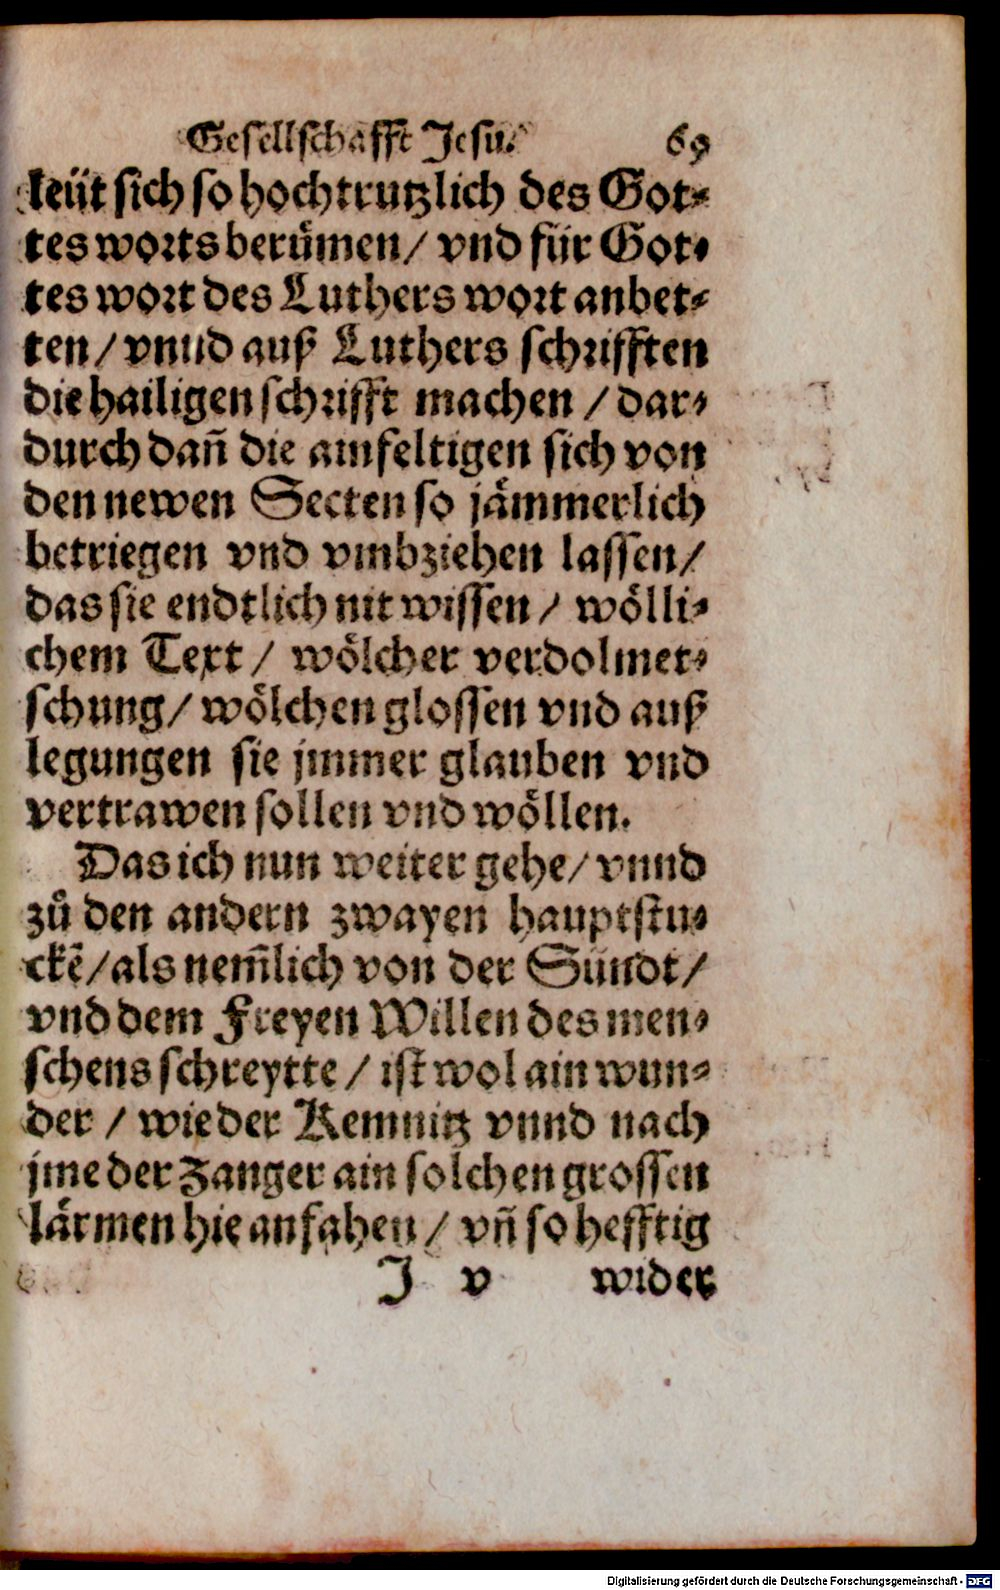 Gesellschafft Jesu. 69
leüt sich so hochtrutzlich des Got⸗
tes worts berümen/ vnd für Got⸗
tes wort des Luthers wort anbet⸗
ten/ vnnd auß Luthers schrifften
die hailigen schrifft machen / dar⸗
durch dañ die ainfeltigen sich von
den newen Secten so jämmerlich
betriegen vnd vmbziehen lassen/
das sie endtlich nit wissen / wölli⸗
chem Text / wölcher verdolmet⸗
schung/ wölchen glossen vnd auß
legungen sie jmmer glauben vnd
vertrawen sollen vnd wöllen.
Das ich nun weiter gehe/ vnnd
zů den andern zwayen hauptstu⸗
ckẽ/als nem̃lich von der Sündt/
vnd dem Freyen Willen des men⸗
schens schreytte / ist wol ain wun⸗
der / wie der Kemnitz vnnd nach
jme der Zanger ain solchen grossen
lärmen hie anfahen / vñ so hefftig
J v wider
Digitalisierung gefördert durch die Deutsche Forschungsgemeinschaft - DFG